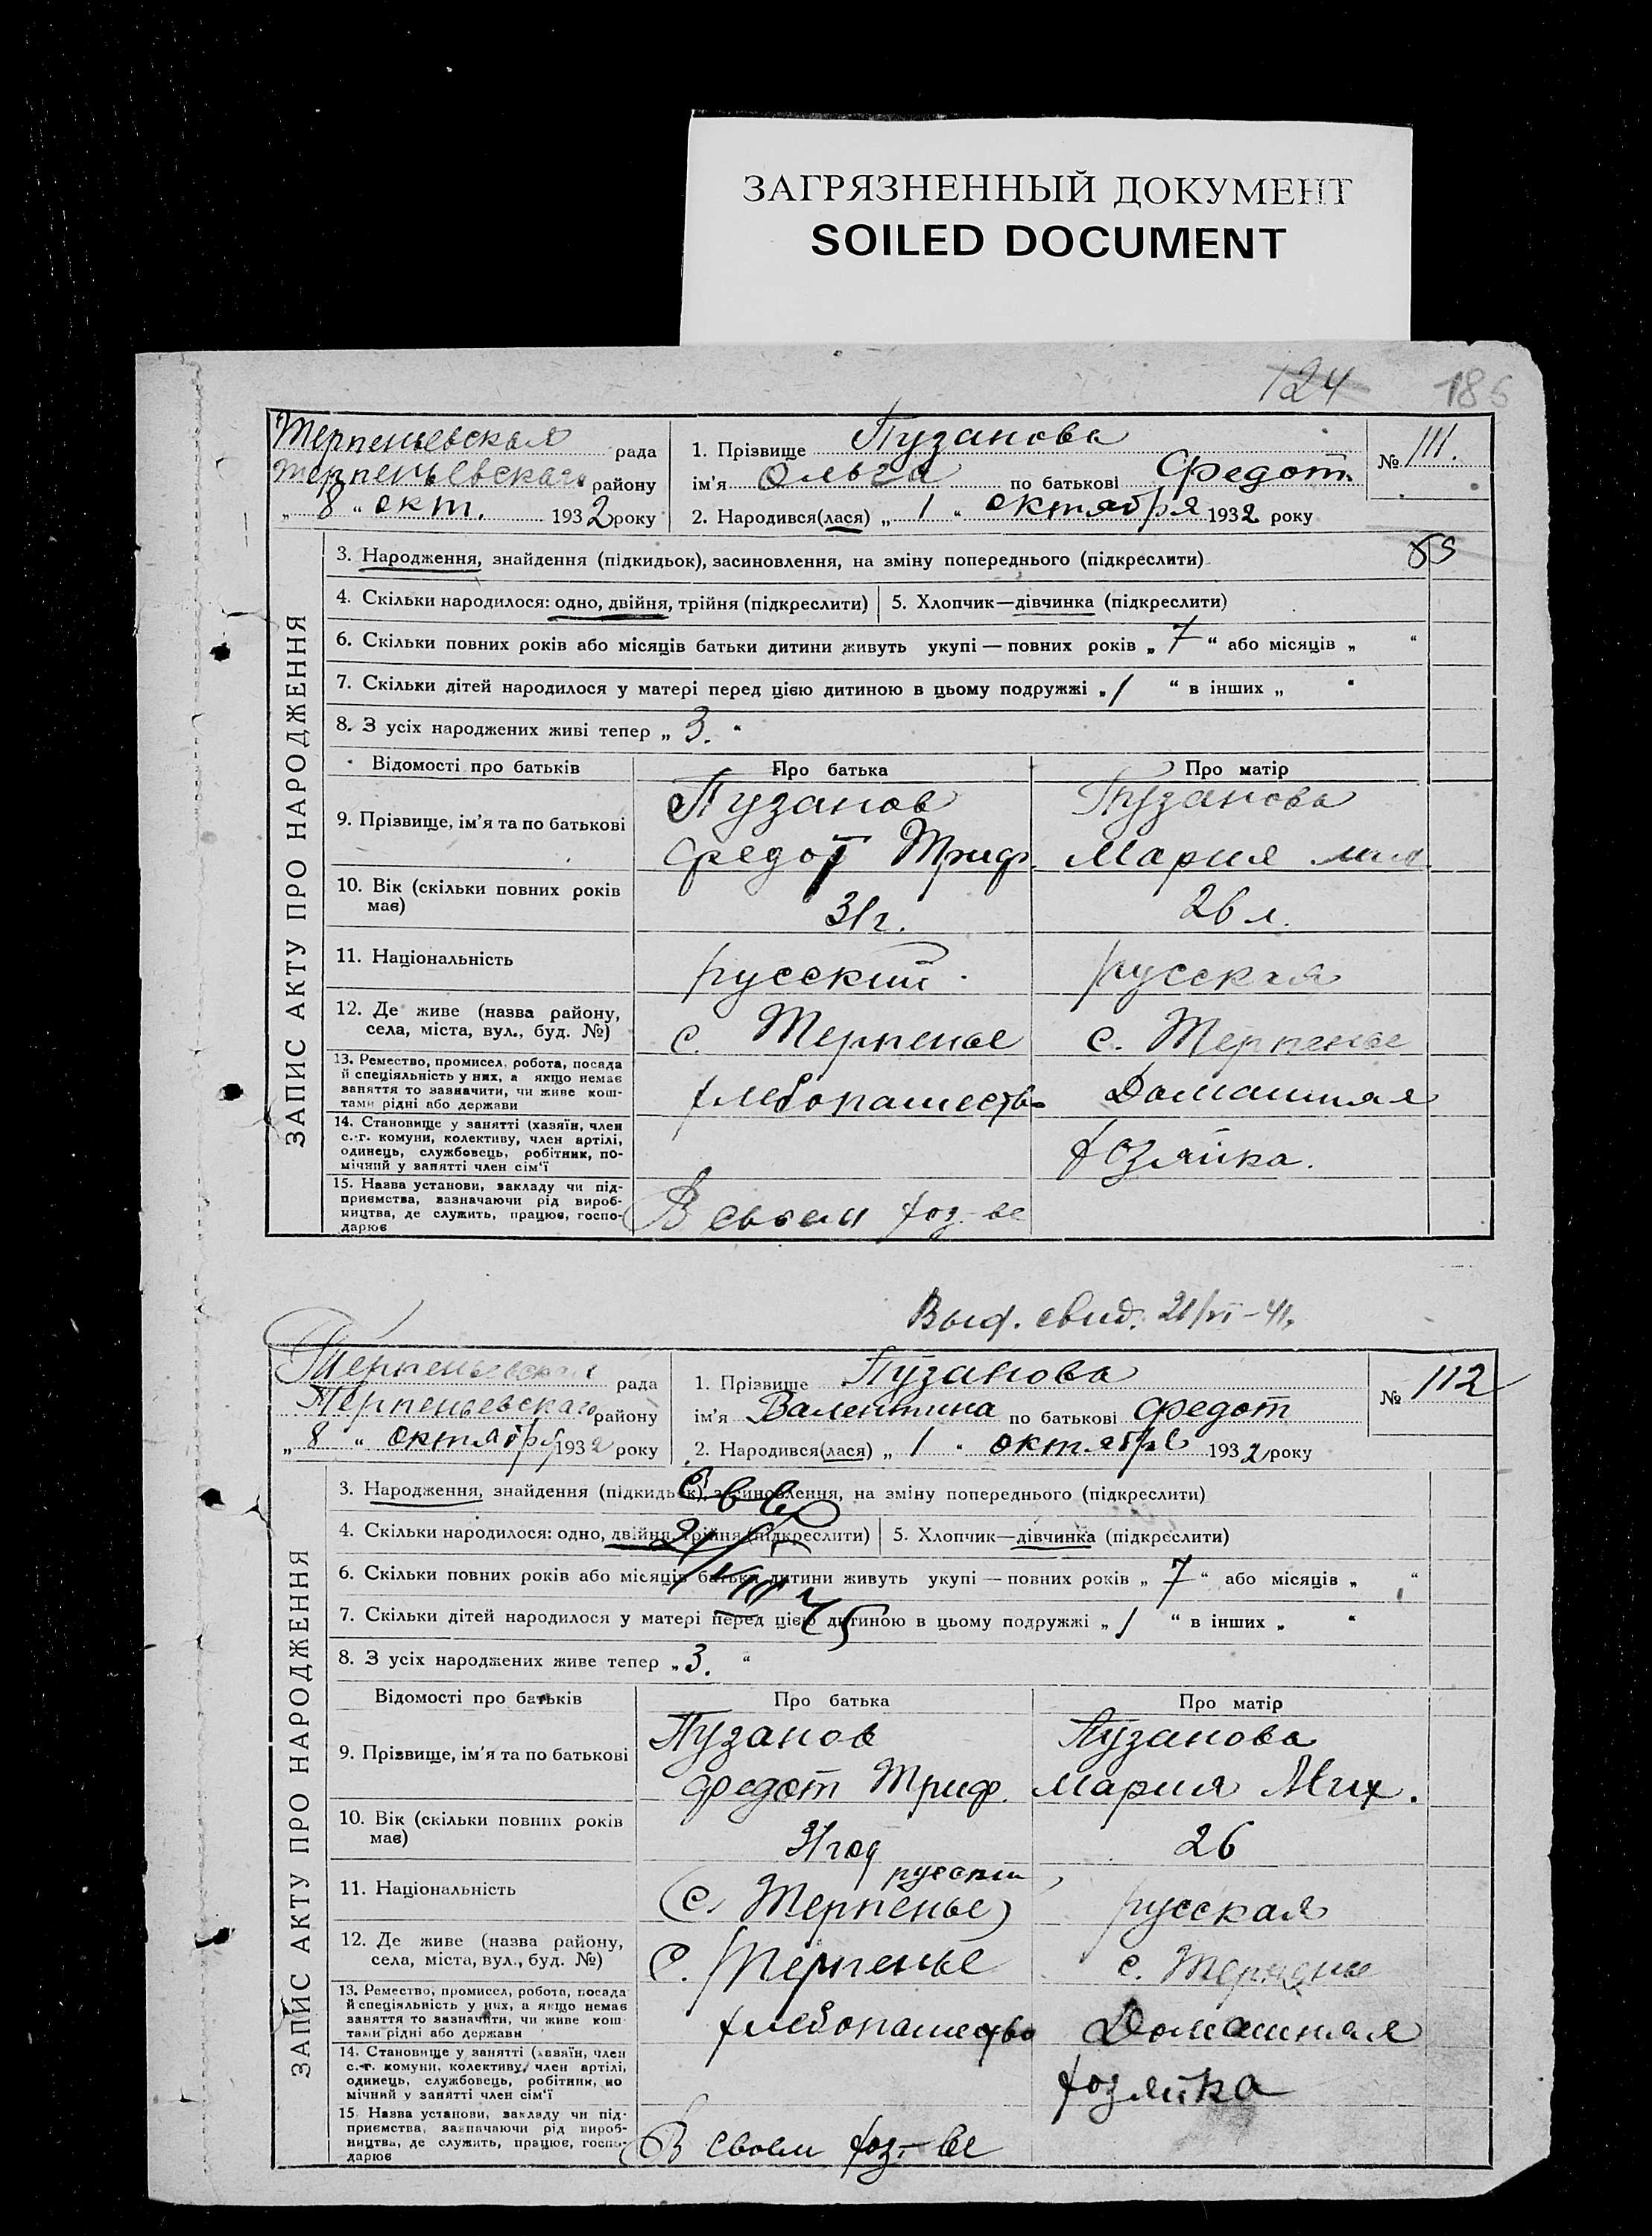 ЗАГРЯЗНЕННЫЙ ДОКУМЕНТ
SOILED DOCUMENT
124 186
Терпеньевская рада
Терпеньевскаго району
„ 8 “ окт. 1932 року
1. Прізвище Пузанова
ім'я Ольга по батькові Федот.
2. Народився(лася) „ 1 “ октября 1932 року
№ 111.
ЗАПИС АКТУ ПРО НАРОДЖЕННЯ
3. Народження, знайдення (підкидьок), засиновлення, на зміну попереднього (підкреслити)
4. Скільки народилося: одно, двійня, трійня (підкреслити) 5. Хлопчик—дівчинка (підкреслити)
6. Скільки повних років або місяців батьки дитини живуть укупі — повних років „ 7 “ або місяців „ “
7. Скільки дітей народилося у матері перед цією дитиною в цьому подружжі „ 1 “ в інших „ “
8. З усіх народжених живі тепер „ 3. “
Відомості про батьків Про батька Про матір
9. Прізвище, ім'я та по батькові
Пузанов Пузанова
Федот Триф. Мария
10. Вік (скільки повних років
має)
31 г. 26 л.
11. Національність русский русская
12. Де живе (назва району,
села, міста, вул., буд. №)
с. Терпенье с. Терпенье
13. Ремество, промисел, робота, посада
й спеціяльність у них, а якщо немає
заняття то зазначити, чи живе кош-
тами рідні або держави
хлебопашество Домашняя
14. Становище у занятті (хазяїн, член
с.-г. комуни, колективу, член артілі,
одинець, службовець, робітник, по-
мічний у занятті член сім'ї
хозяйка.
15. Назва установи, закладу чи під-
приємства, зазначаючи рід вироб-
ництва, де служить, працює, госпо-
дарює
В своем хоз-ве
Выд. свид. 21/VI - 41.
Терпеньевская рада
Терпеньевскаго району
„ 8 “ октября 1932 року
1. Прізвище Пузанова
ім'я Валентина по батькові Федот
2. Народився(лася) „ 1 “ октября 1932 року
№ 112
ЗАПИС АКТУ ПРО НАРОДЖЕННЯ
3. Народження, знайдення (підкидьок), засиновлення, на зміну попереднього (підкреслити)
4. Скільки народилося: одно, двійня, трійня (підкреслити) 5. Хлопчик—дівчинка (підкреслити)
6. Скільки повних років або місяців батьки дитини живуть укупі — повних років „ 7 “ або місяців „ “
7. Скільки дітей народилося у матері перед цією дитиною в цьому подружжі „ 1 “ в інших „ “
8. З усіх народжених живе тепер „ 3. “
Відомості про батьків Про батька Про матір
9. Прізвище, ім'я та по батькові
Пузанов Пузанова
Федот Триф. Мария Мих.
10. Вік (скільки повних років
має)
31 год 26
русский
11. Національність (с. Терпенье) русская
12. Де живе (назва району,
села, міста, вул., буд. №)
с. Терпенье с. Терпенье
13. Ремество, промисел, робота, посада
й спеціяльність у них, а якщо немає
заняття то зазначити, чи живе кош
тами рідні або держави
хлебопашество Домашняя
14. Становище у занятті (хазяїн, член
с.-г. комуни, колективу, член артілі,
одинець, службовець, робітник, по
мічний у занятті член сім'ї
хозяйка
15. Назва установи, закладу чи під-
приємства, зазначаючи рід вироб-
ництва, де служить, працює, госпо-
дарює
В своем хоз-ве